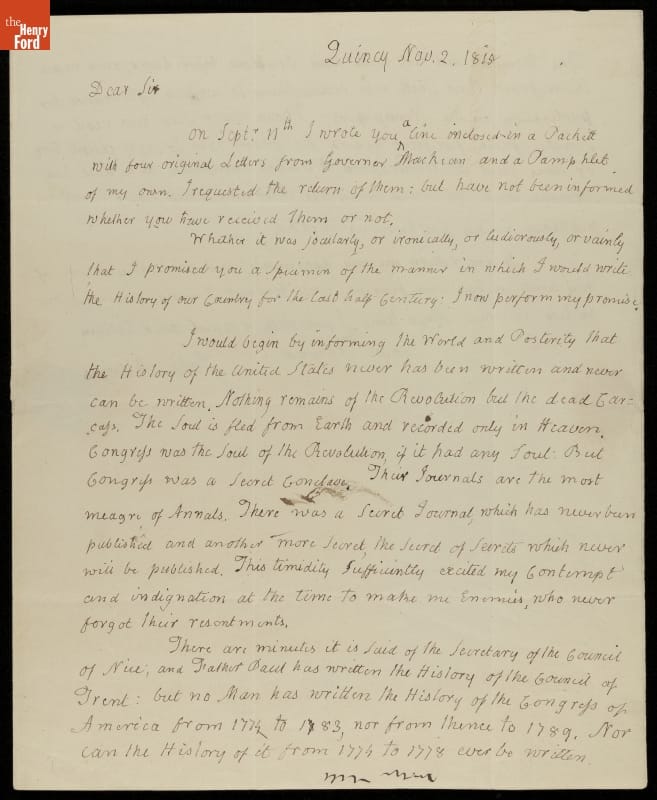 the
Henry
Ford
Quincy Nov. 2. 1815
Dear Sir
On Septr 11th I wrote you a line inclosed in a Packett
with four original Letters from Governor Mackean and a Pamphlet
of my own. I requested the return of them: but have not been informed
whether you have received them or not.
Whether it was jocularly, or ironically, or ludicrously, or vainly,
that I promised you a Specimen of the manner in which I would write
the History of our Country for the last half Century: I now perform my promise.
I would begin by informing the World and Posterity that
the History of the United States never has been written and never
can be written. Nothing remains of the Revolution but the dead Car=
cass. The Soul is fled from Earth and recorded only in Heaven.
Congress was the Soul of the Revolution, if it had any Soul. But
Congress was a Secret Conclave. Their Journals are the most
meagre of Annals. There was a Secret Journal, which has never been
published and another more secret, the Secret of Secrets which never
will be published. This timidity sufficiently excited my Contempt
and indignation at the time to make me Enemies, who never
forgot their resentments.
There are minutes it is said of the Secretary of the Council
of Nice, and Father Paul has written the History of the Council of
Trent: but no Man has written the History of the Congress of
America from 1774 to 1783, nor from thence to 1789. Nor
can the History of it from 1774 to 1778 ever be written.